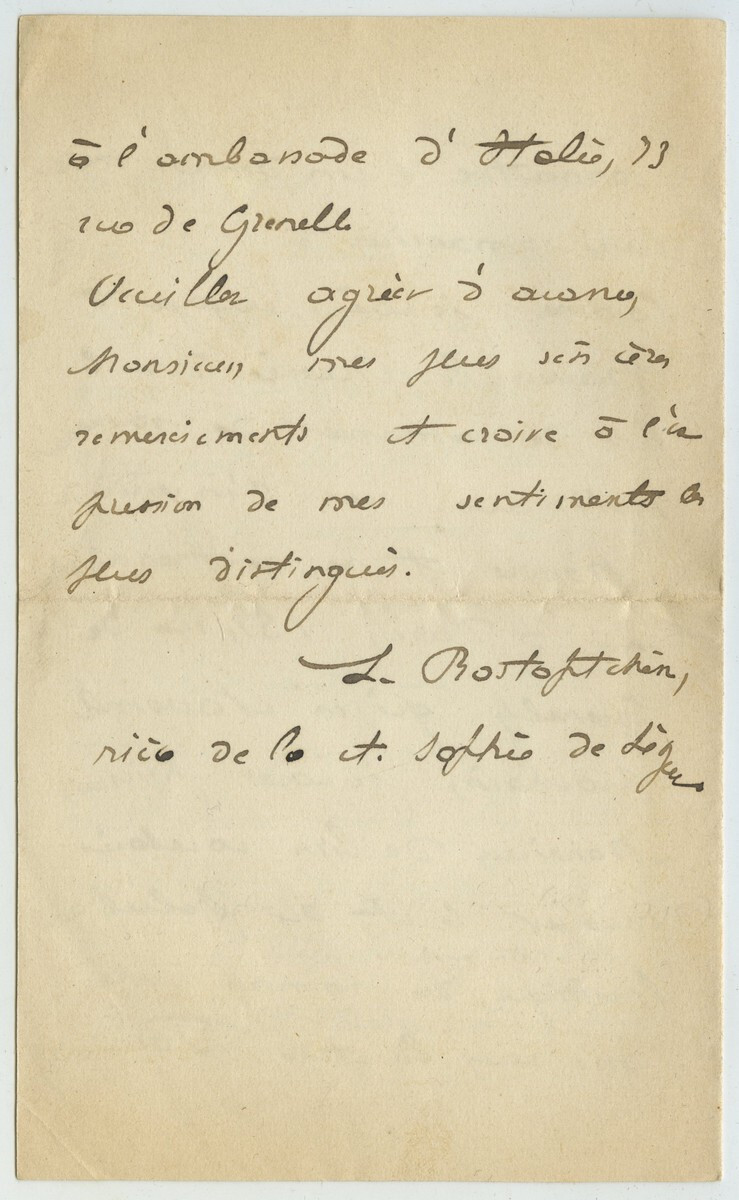 à l'ambassade d'Italie, 73
rue de Grenelle
Veuillez agréer d'avance,
Monsieur, mes plus sincères
remerciements et croire à l'ex
pression de mes sentiments les
plus distingués.
L. Rostoptchin,
nièce de la ct. Sophie de Ségur